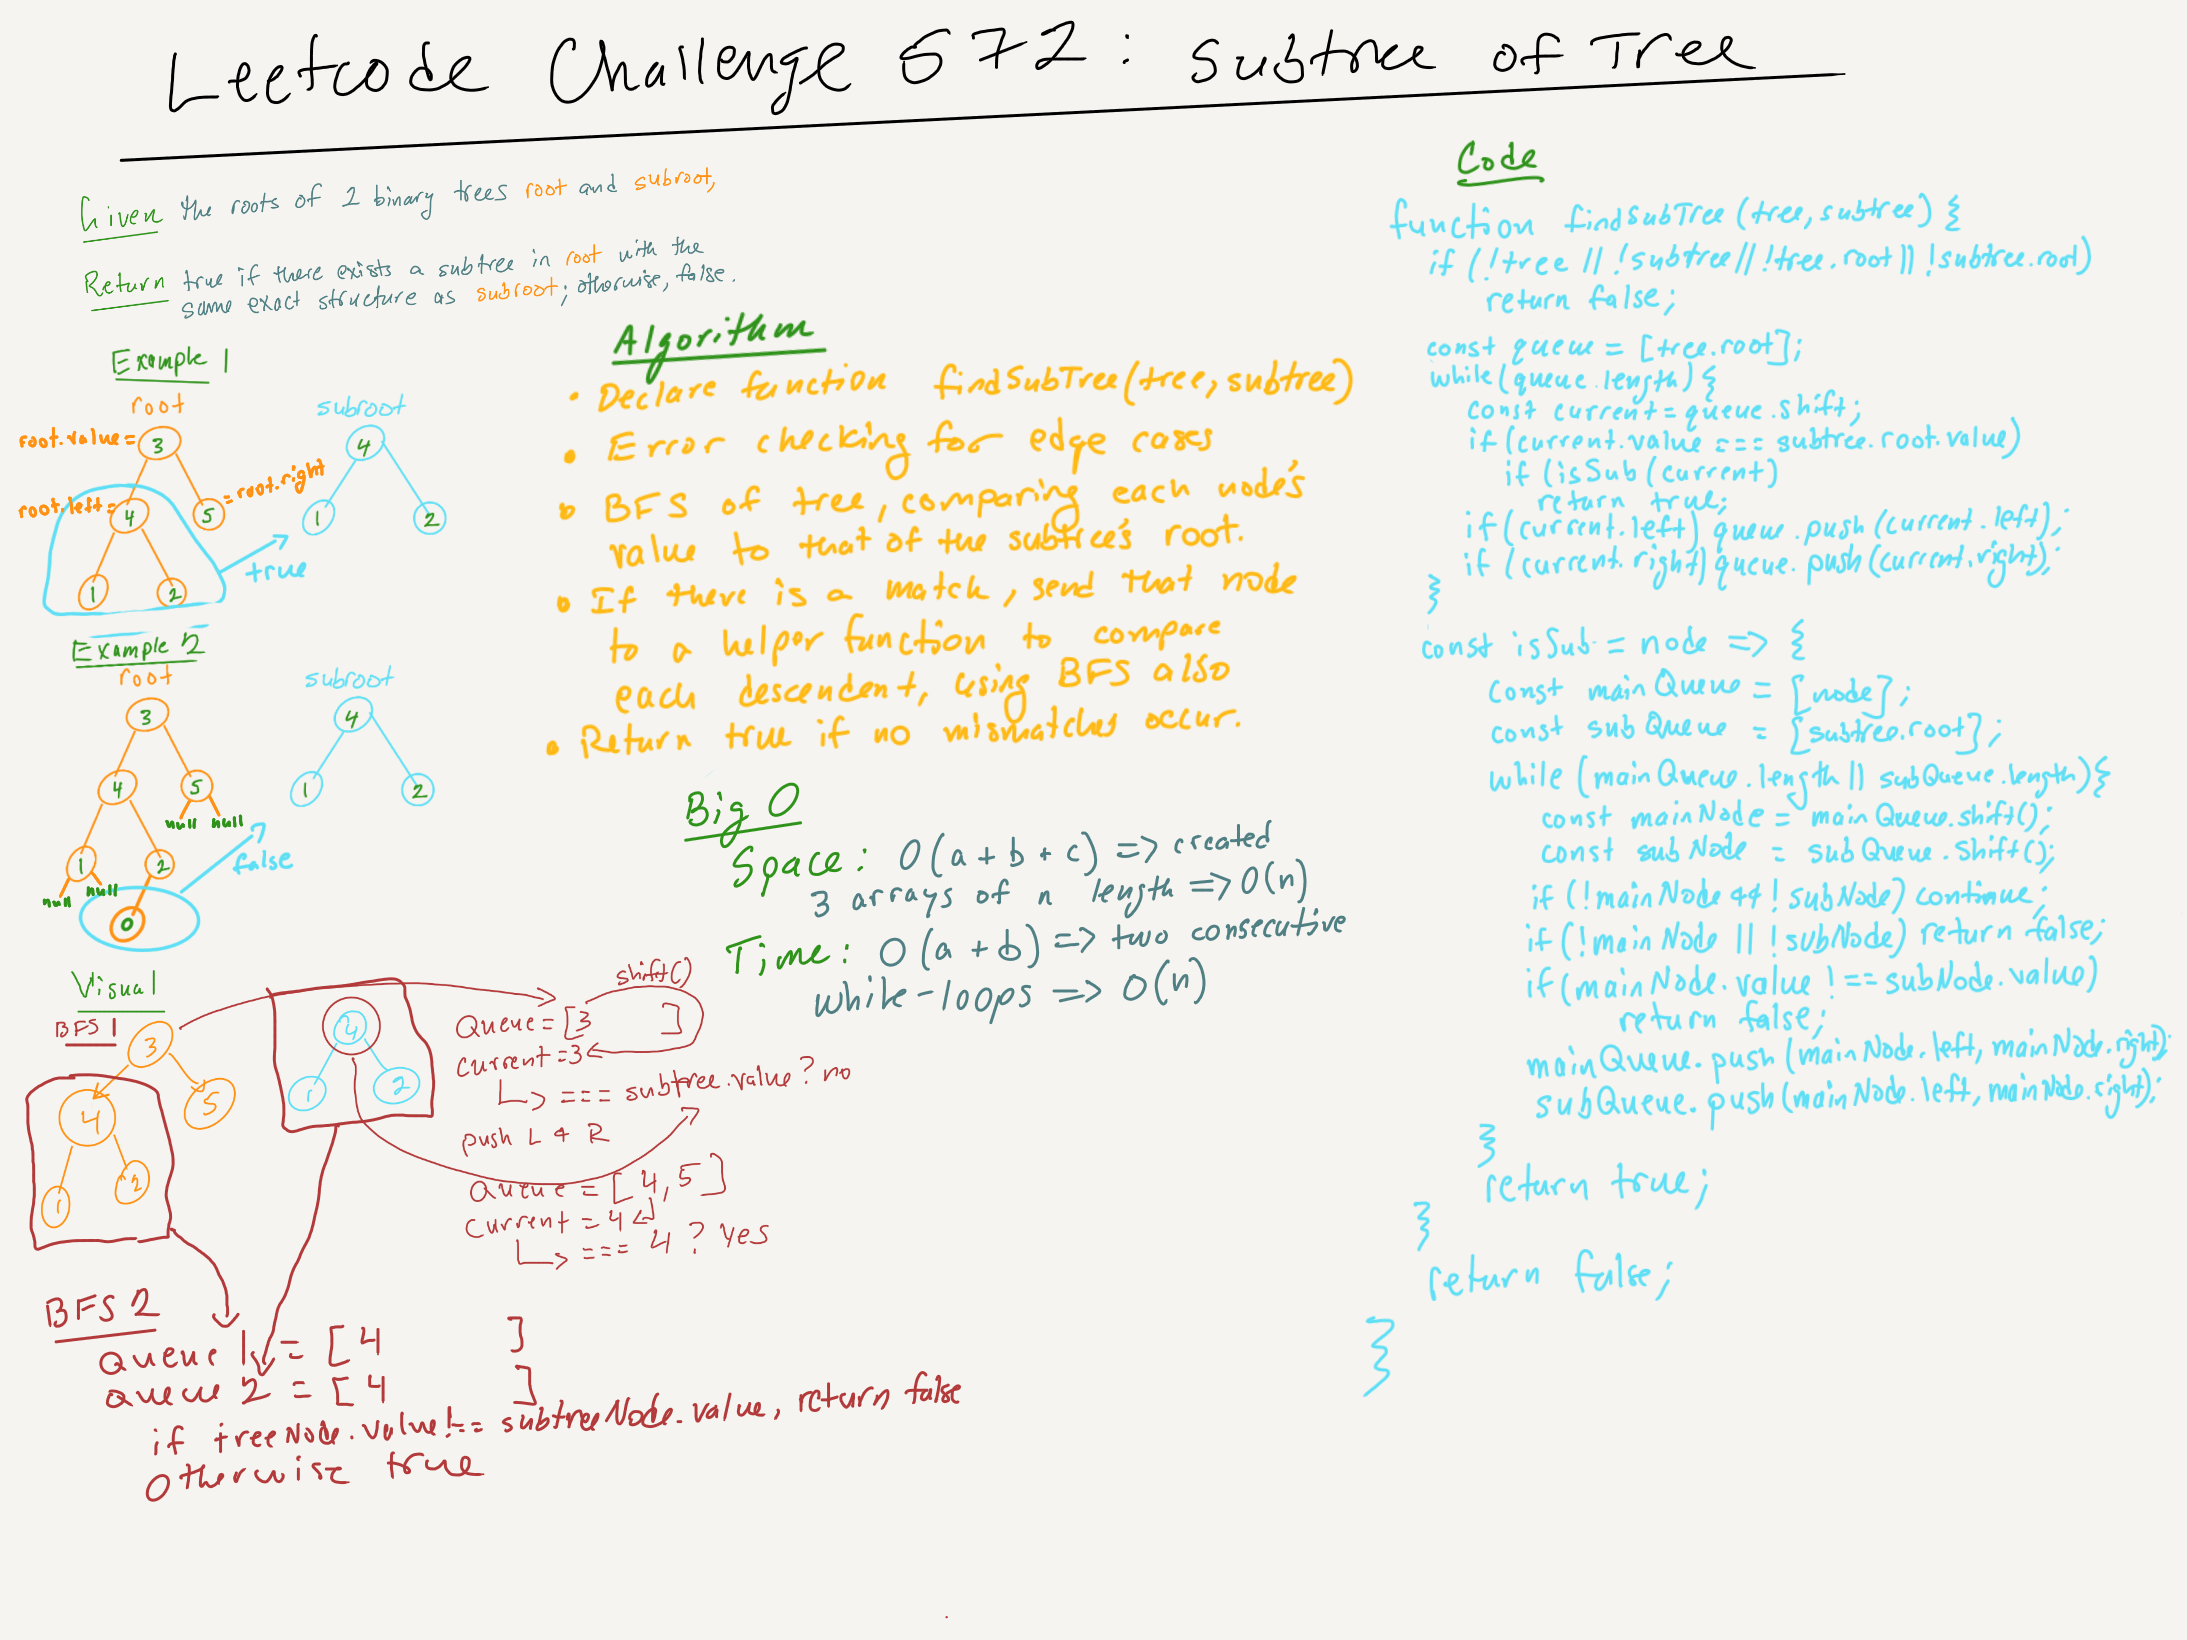 Leetcode Challenge 572: Subtree of Tree
Given the roots of 2 binary trees root and subroot,
Return true if there exists a subtree in root with the
same exact structure as subroot; otherwise, false.
Example 1
root
subroot
root.value =
3
4
root.left =
4
5
= root.right
1
2
1
2
true
Example 2
root
subroot
3
4
4
5
1
2
null
null
1
2
false
null
null
0
Visual
BFS 1
3
4
5
1
2
4
1
2
shift()
Queue = [3 ]
current = 3
=== subtree.value? no
push L & R
Queue = [4, 5]
Current = 4
=== 4 ? Yes
BFS 2
Queue 1 = [4 ]
queue 2 = [4 ]
if treeNode.value !== subtreeNode.value, return false
Otherwise true
Algorithm
• Declare function findSubTree(tree, subtree)
• Error checking for edge cases
• BFS of tree, comparing each node's
value to that of the subtree's root.
• If there is a match, send that node
to a helper function to compare
each descendent, using BFS also
• Return true if no mismatches occur.
Big O
Space: O(a + b + c) => created
3 arrays of n length => O(n)
Time: O(a + b) => two consecutive
while-loops => O(n)
Code
function findSubTree (tree, subtree) {
if (!tree || !subtree || !tree.root || !subtree.root)
return false;
const queue = [tree.root];
while (queue.length) {
const current = queue.shift;
if (current.value === subtree.root.value)
if (isSub (current)
return true;
if (current.left) queue.push (current.left);
if (current.right) queue.push (current.right);
}
const isSub = node => {
const mainQueue = [node];
const subQueue = [subtree.root];
while (mainQueue.length || subQueue.length) {
const mainNode = mainQueue.shift();
const subNode = subQueue.shift();
if (!mainNode && !subNode) continue;
if (!mainNode || !subNode) return false;
if (mainNode.value !== subNode.value)
return false;
mainQueue.push (mainNode.left, mainNode.right);
subQueue.push (mainNode.left, mainNode.right);
}
return true;
}
return false;
}